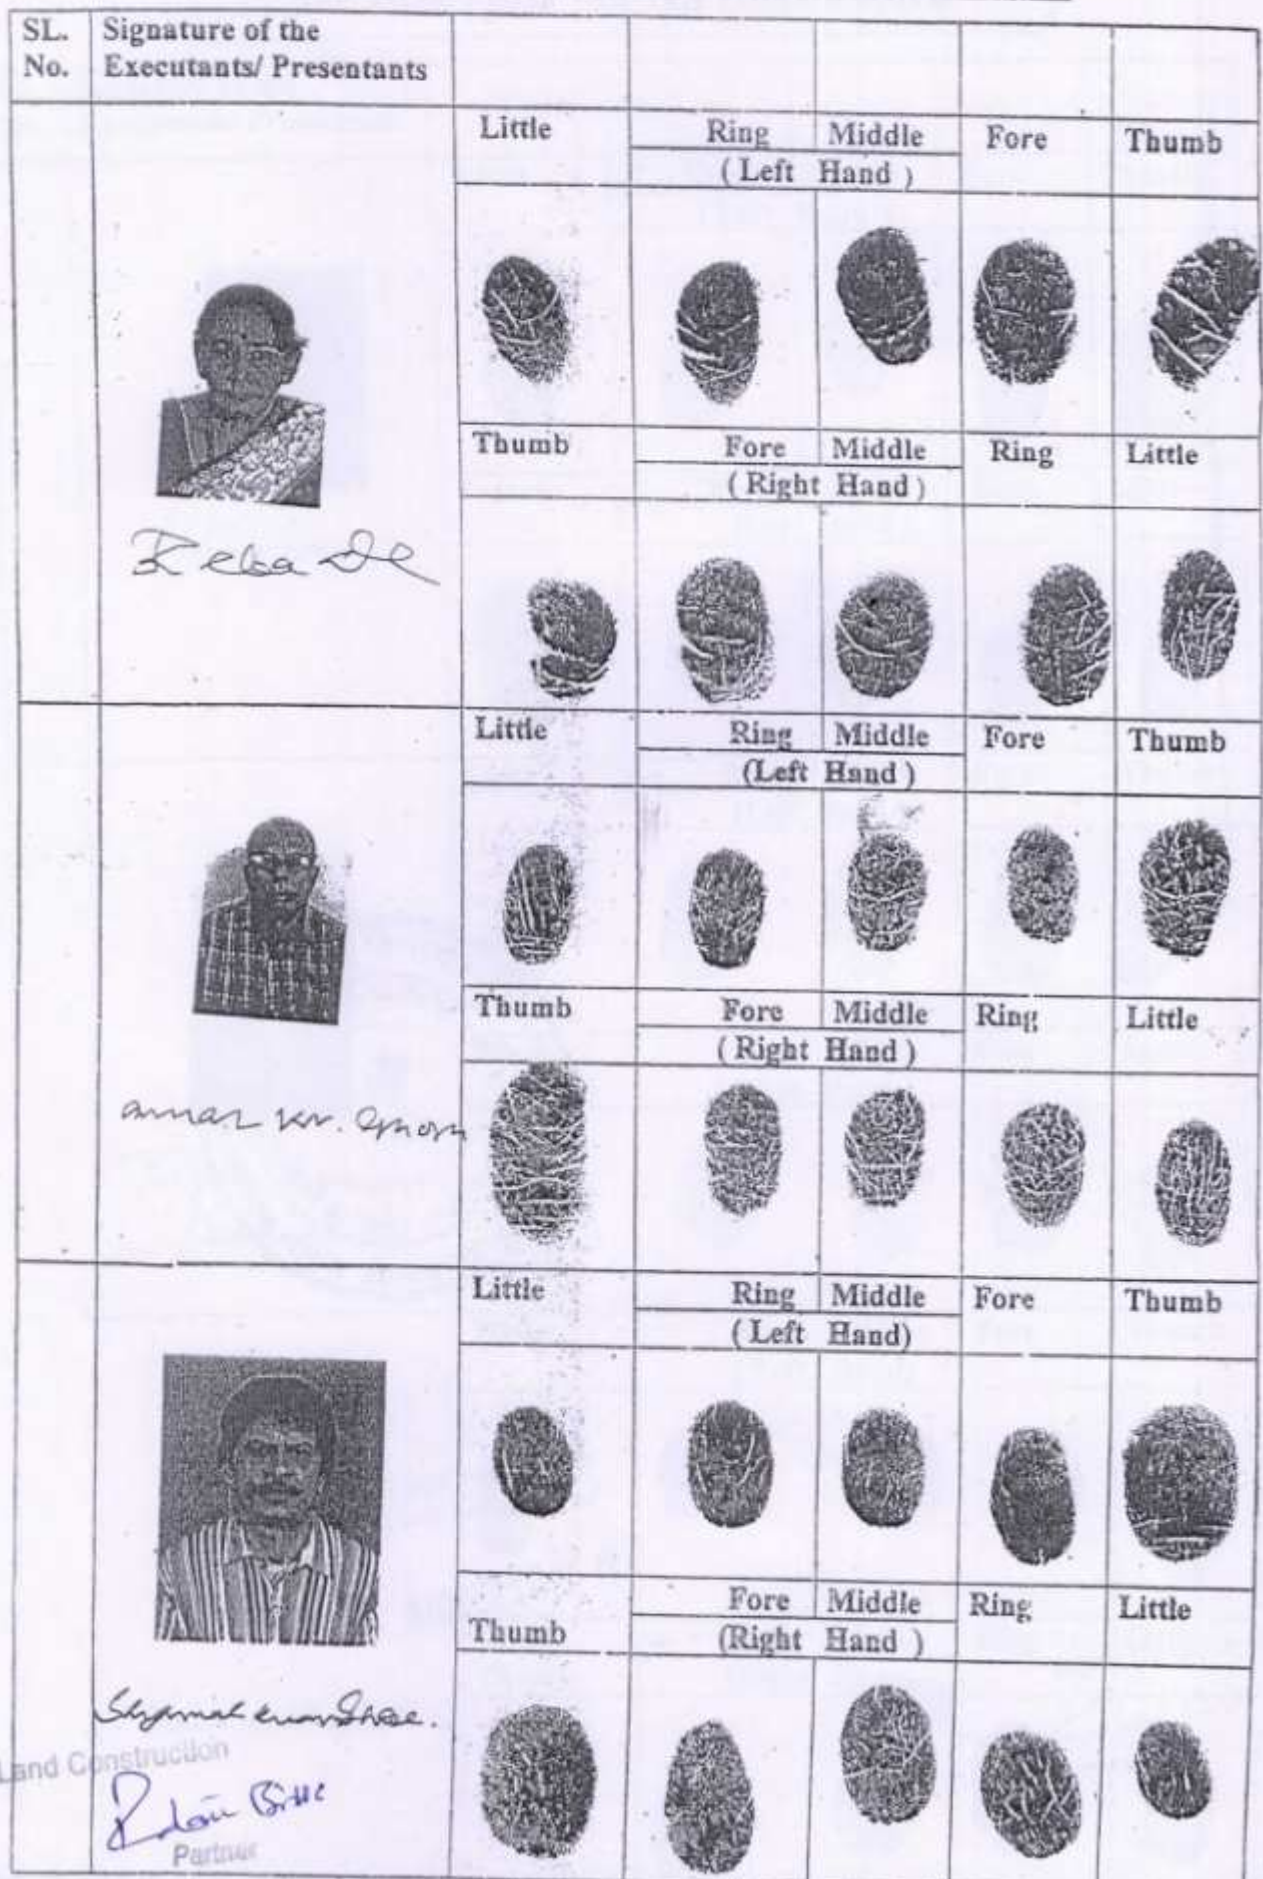 SL. Signature of the
No. Executants/ Presentants
Little Ring Middle Fore Thumb
( Left Hand )
Thumb Fore Middle Ring Little
( Right Hand )
Reba De
Little Ring Middle Fore Thumb
(Left Hand )
Thumb Fore Middle Ring Little
( Right Hand )
amar kr.
Little Ring Middle Fore Thumb
( Left Hand)
Fore Middle Ring Little
Thumb (Right Hand )
Shyamal
Land Construction
Partner